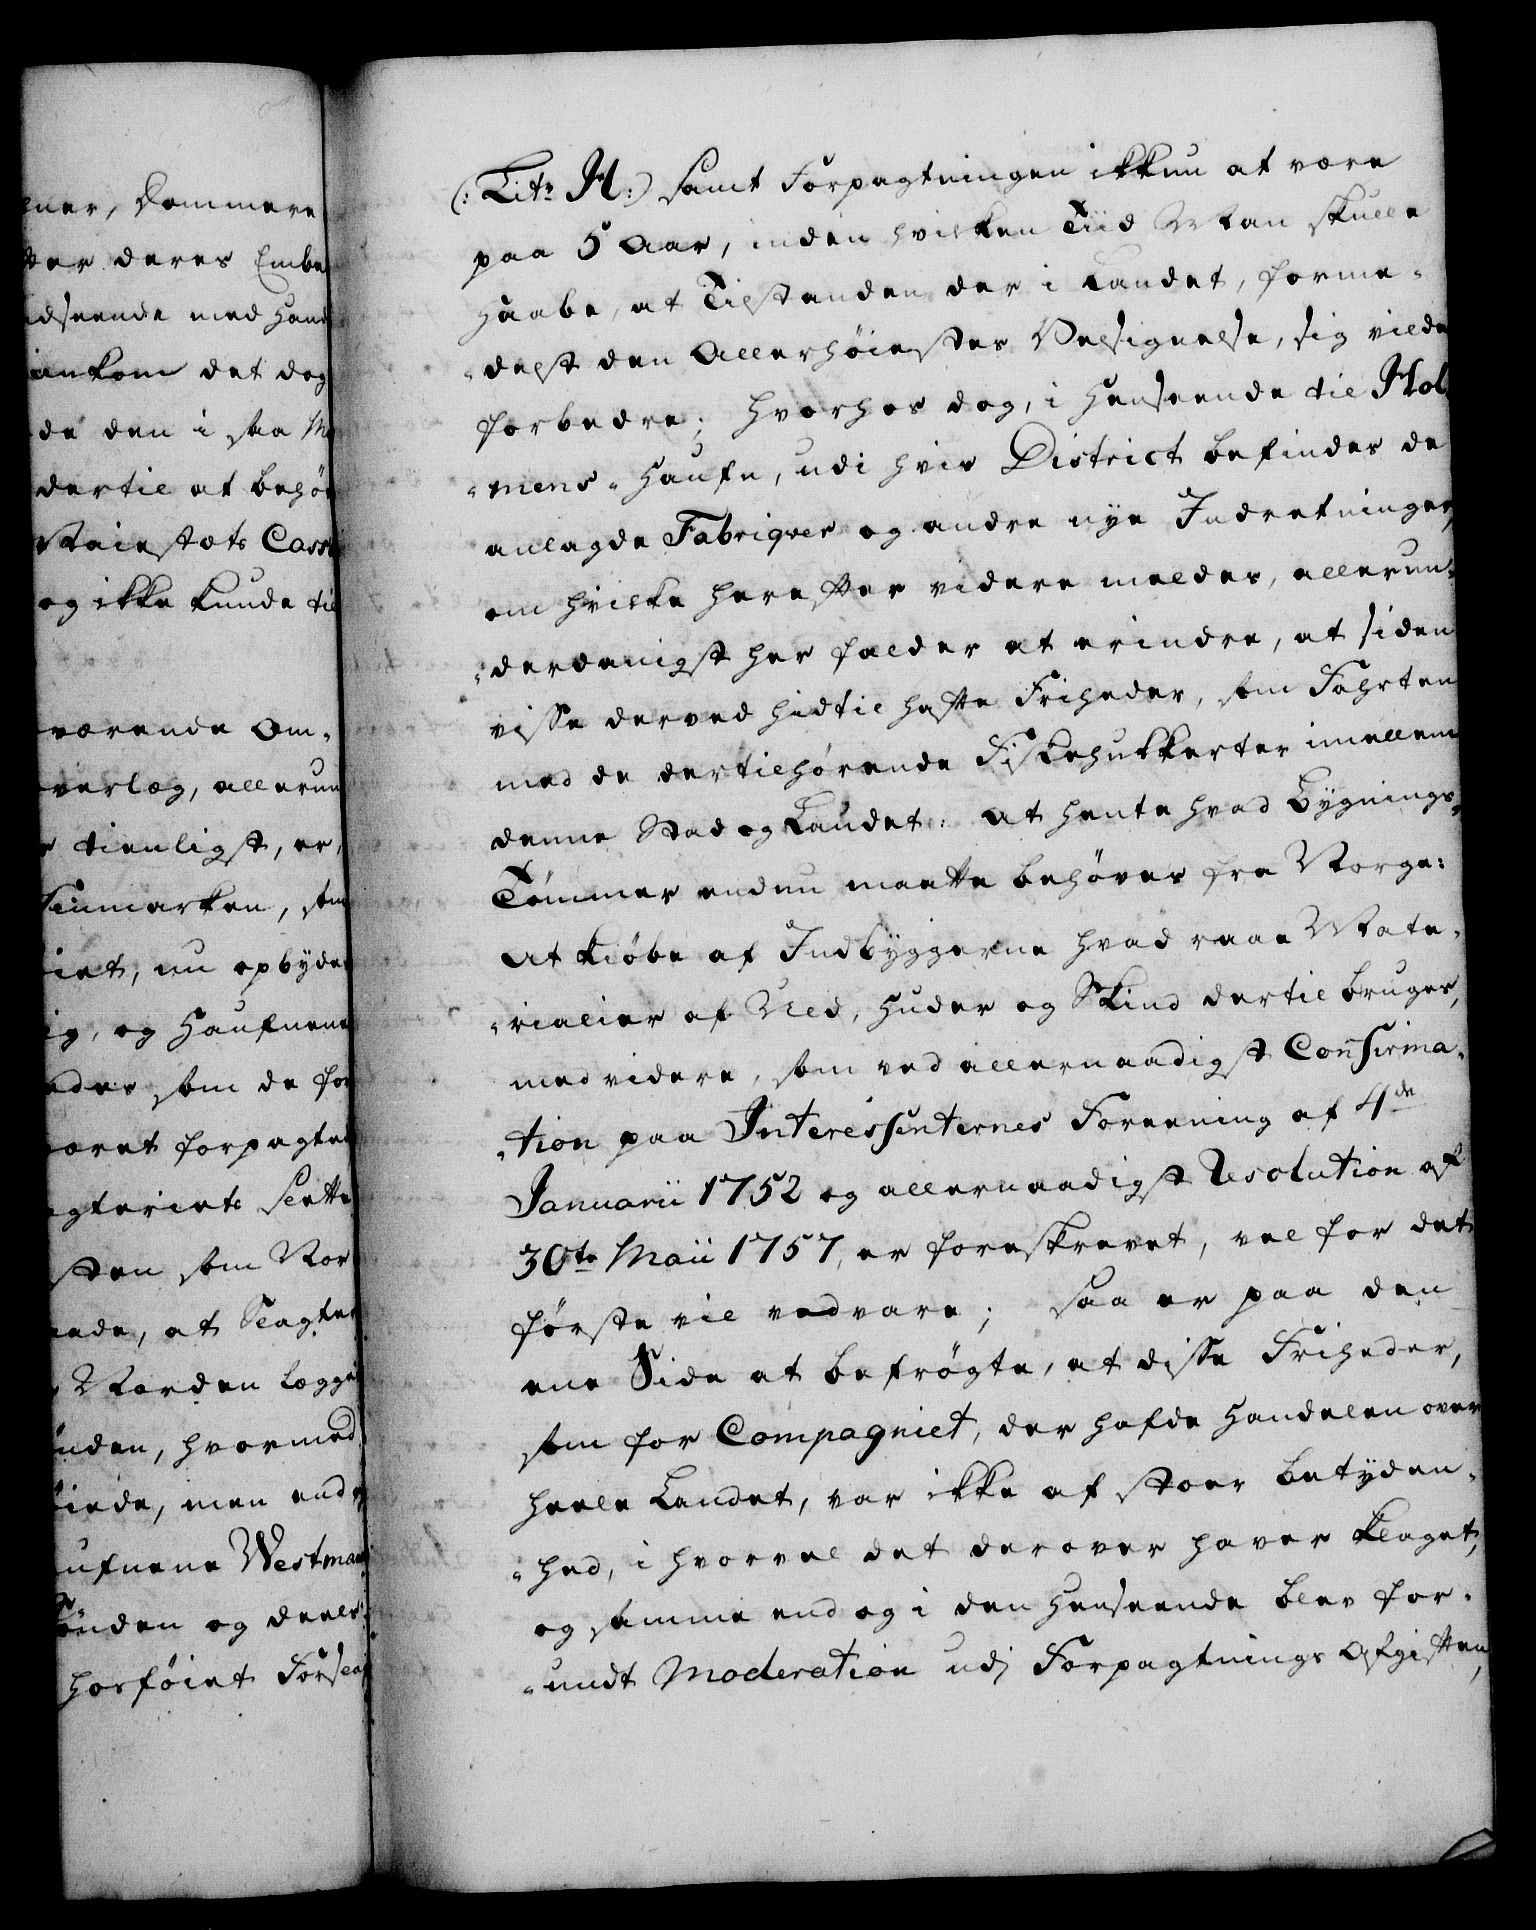 ner, Dommere
ter deres Embe
dseende med Hand
ankom det dog
de den i saa M
dertil at behø
Maiestæts Cass
og ikke kunde til
værende Om-
verlæg, allerun
tienligst, er,
Finmarken, som
iet, nu opbyde
ig, og Haufnene
ades som de for
været forpagtet
gteriets Slette
sten som Nor
ade, at Slagter
Norden Lægge
nden, hvormed
iede, men end
ufnene Westman
ønden og deels
hosføiet Forslag
(: Litr H:) samt Forpagtningen ikkun at være
paa 5 Aar, inden hvilken Tiid Man skulle
Haabe, at Tilstanden der i Landet, forme-
-delst den Allerhöiestes Velsignelse, sig vilde
forbedre; hvorhos dog, i Henseende til Hol-
-mens-Haufn, udi hvis District befindes de
anlagde Fabriqver og andre nye Indretninger,
om hvilke herefter videre meldes, allerun-
-derdanigst her falder at erindre, at siden
visse derved hidtil hafte Friheder, som Fahrten
med de dertilhørende Fiskehukkerter imellem
denne Stad og Landet: At hente hvad Bygnings-
Tømmer endnu maatte behöves fra Norge:
At kiöbe af Indbyggerne hvad raae Mate-
-rialier af Uld, Huder og Skind dertil bruges,
med videre, som ved allernaadigst Confirma-
-tion paa Interessenternes Foreening af 4de
Januarii 1752 og allernaadigst Resolution af
30te Maii 1757, er foreskrevet, vel for det
første vil vedvare; saa er paa den
ene Side at befrögte, at disse Friheder,
som for Compagniet, der hafde Handelen over
heele Landet, var ikke af stoer betyden-
-hed, i hvorvel det derover haver klaget,
og samme endog i den Henseende blev for-
-undt Moderation udj Forpagtnings Afgiften,